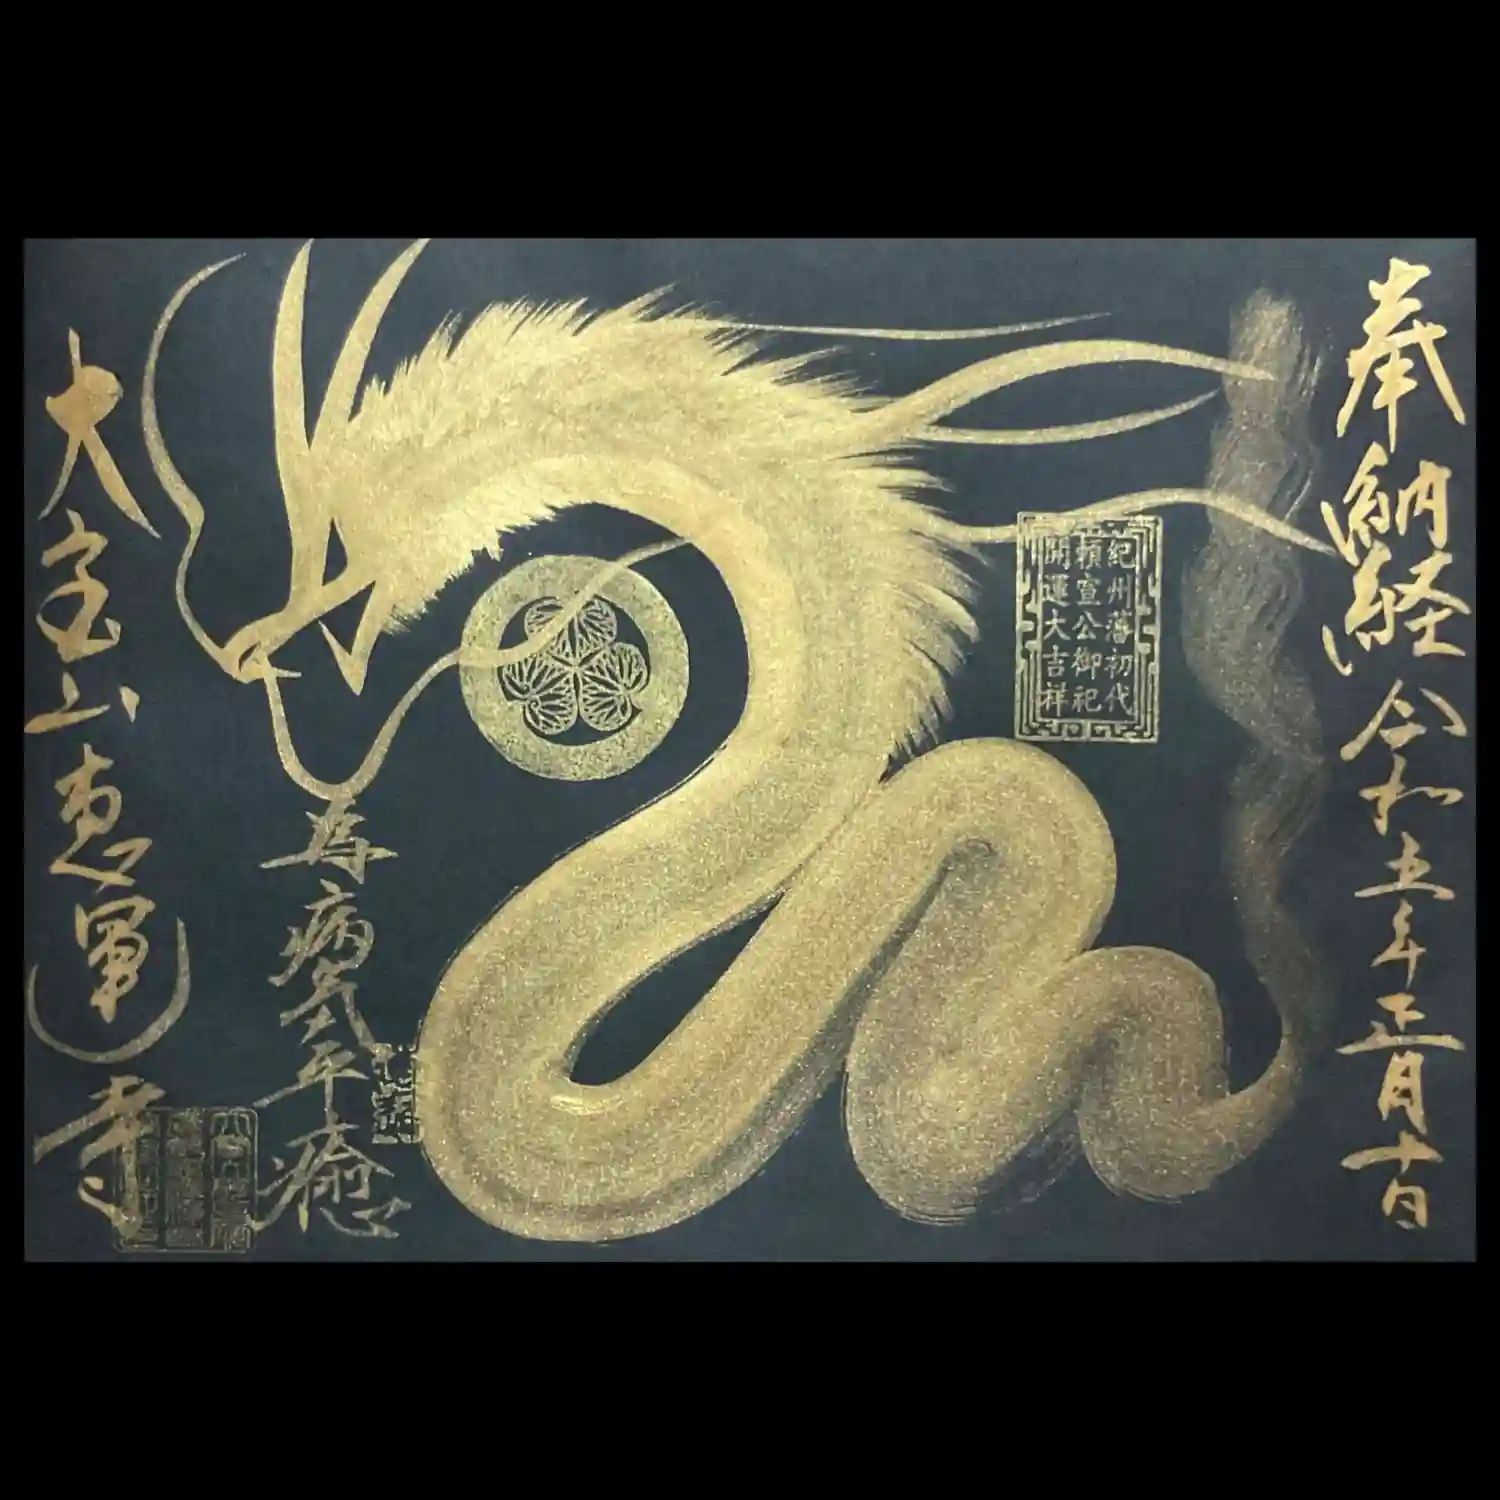 奉納経 令和五年正月十日
紀州藩初代
頼宣公御祀
開運大吉祥
病気平癒
大宝山恵運寺